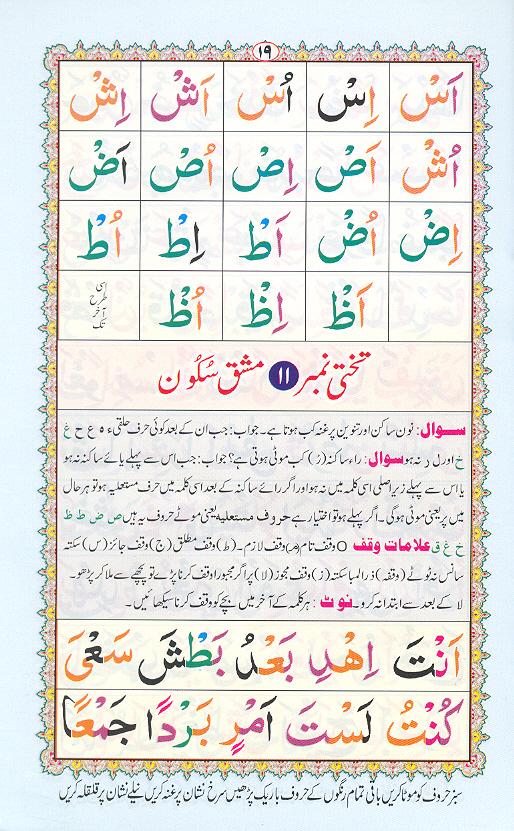 ۱۹
اَسْ اِسْ اُسْ اَشْ اِشْ
اُشْ اَصْ اِصْ اُصْ اَضْ
اِضْ اُضْ اَطْ اِطْ اُطْ
اَظْ اِظْ اُظْ اسی طرح آخر تک
تختی نمبر ۱۱ مشق سُکُون
سوال: نون ساکن اور تنوین پر غنہ کب ہوتا ہے۔ جواب: جب ان کے بعد کوئی حرف حلقی ء ہ ع ح غ
خ اور ل ر نہ ہو سوال: راء ساکنہ (رْ) کب موٹی ہوتی ہے؟ جواب: جب اس سے پہلے یائے ساکنہ نہ ہو
یا اس سے پہلے زیر اصلی اسی کلمہ میں نہ ہو اور اگر رائے ساکنہ کے بعد اسی کلمہ میں حرف مستعلیہ ہو تو ہر حال
میں پر یعنی موٹی ہوگی۔ اگر پہلے ہو تو اختیار ہے حروف مستعلیہ یعنی موٹے حروف یہ ہیں ص ض ط ظ
خ غ ق علامات وقف O وقف تام (مـ) وقف لازم۔ (ط) وقف مطلق (ج) وقف جائز (س) سکتہ
سانس نہ ٹوٹے (وقفہ) ذرا لمبا سکتہ (ز) وقف مجوز (لا) پر اگر مجبوراً وقف کرنا پڑے تو پیچھے سے ملا کر پڑھو۔
لا کے بعد سے ابتدا نہ کرو۔ نوٹ: ہر کلمہ کے آخر میں بچے کو وقف کرنا سیکھائیں۔
اَنْتَ اِهْدِ بَعْدُ بَطْشَ سَعْیَ
كُنْتُ لَسْتَ اَمْرٍ بَرْدًا جَمْعًا
سبز حروف کو موٹا کریں باقی تمام رنگوں کے حروف باریک پڑھیں سرخ نشان پر غنہ کریں نیلے نشان پر قلقلہ کریں